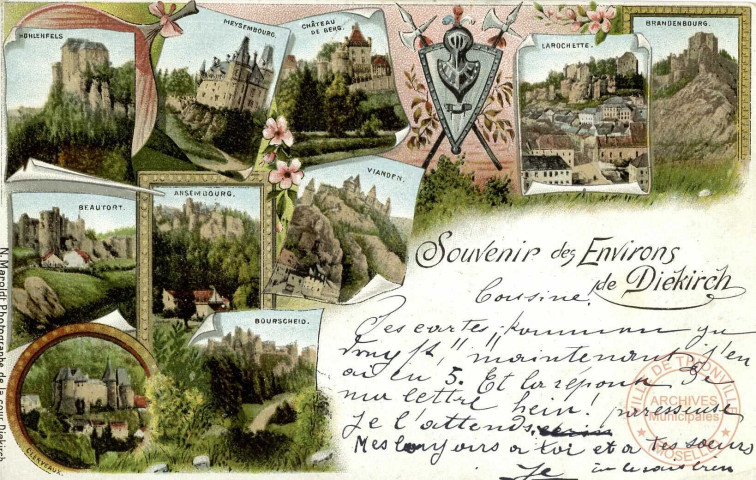 HOHLENFELS
MEYSEMBOURG.
CHÂTEAU
DE BERG.
LAROCHETTE.
BRANDENBOURG.
BEAUFORT.
ANSEMBOURG.
VIANDEN.
BOURSCHEID.
CLERVAUX.
N. Maroldt Photographe de la cour Diekirch
Souvenir des Environs
de Diekirch
Cousine.
Ces cartes
maintenant j'en
ai eu 5. Et la réponse de
ma lettre hein! paresseuse
Je l'attends
à toi et à tes soeurs
Je
VILLE DE THIONVILLE
ARCHIVES
Municipales
MOSELLE